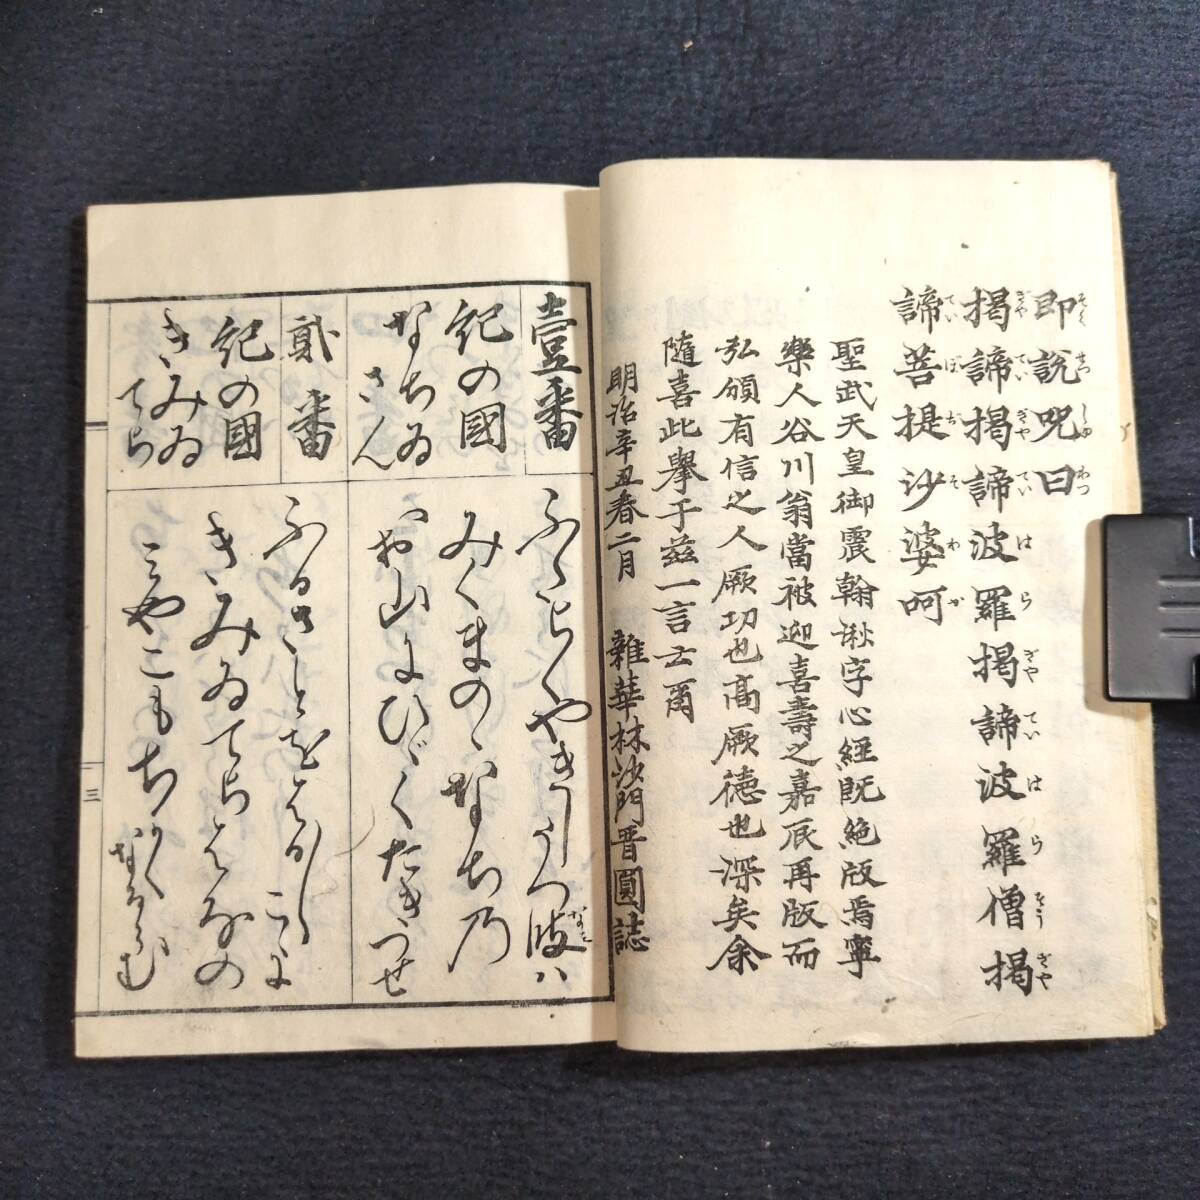 即説呪曰
掲諦掲諦波羅掲諦波羅僧掲
諦菩提沙婆呵
聖武天皇御震翰楸字心経既絶版焉寧
楽人谷川翁當被迎喜壽之嘉辰再版而
弘頒有信之人厥功也高厥徳也深矣余
隨喜此擧于茲一言云爾
明治辛丑春二月 雜華林沙門晋圓誌
壹番
紀の國
なちゐ
さん
ふたらくやきしうつ波ハ
みくまのゝなち乃
お山にひゞくたきつせ
貳番
紀の國
きみゐ
てら
ふるさとをはる〳〵こゝに
きみゐてらはなの
みやこもちかくなるらむ
三